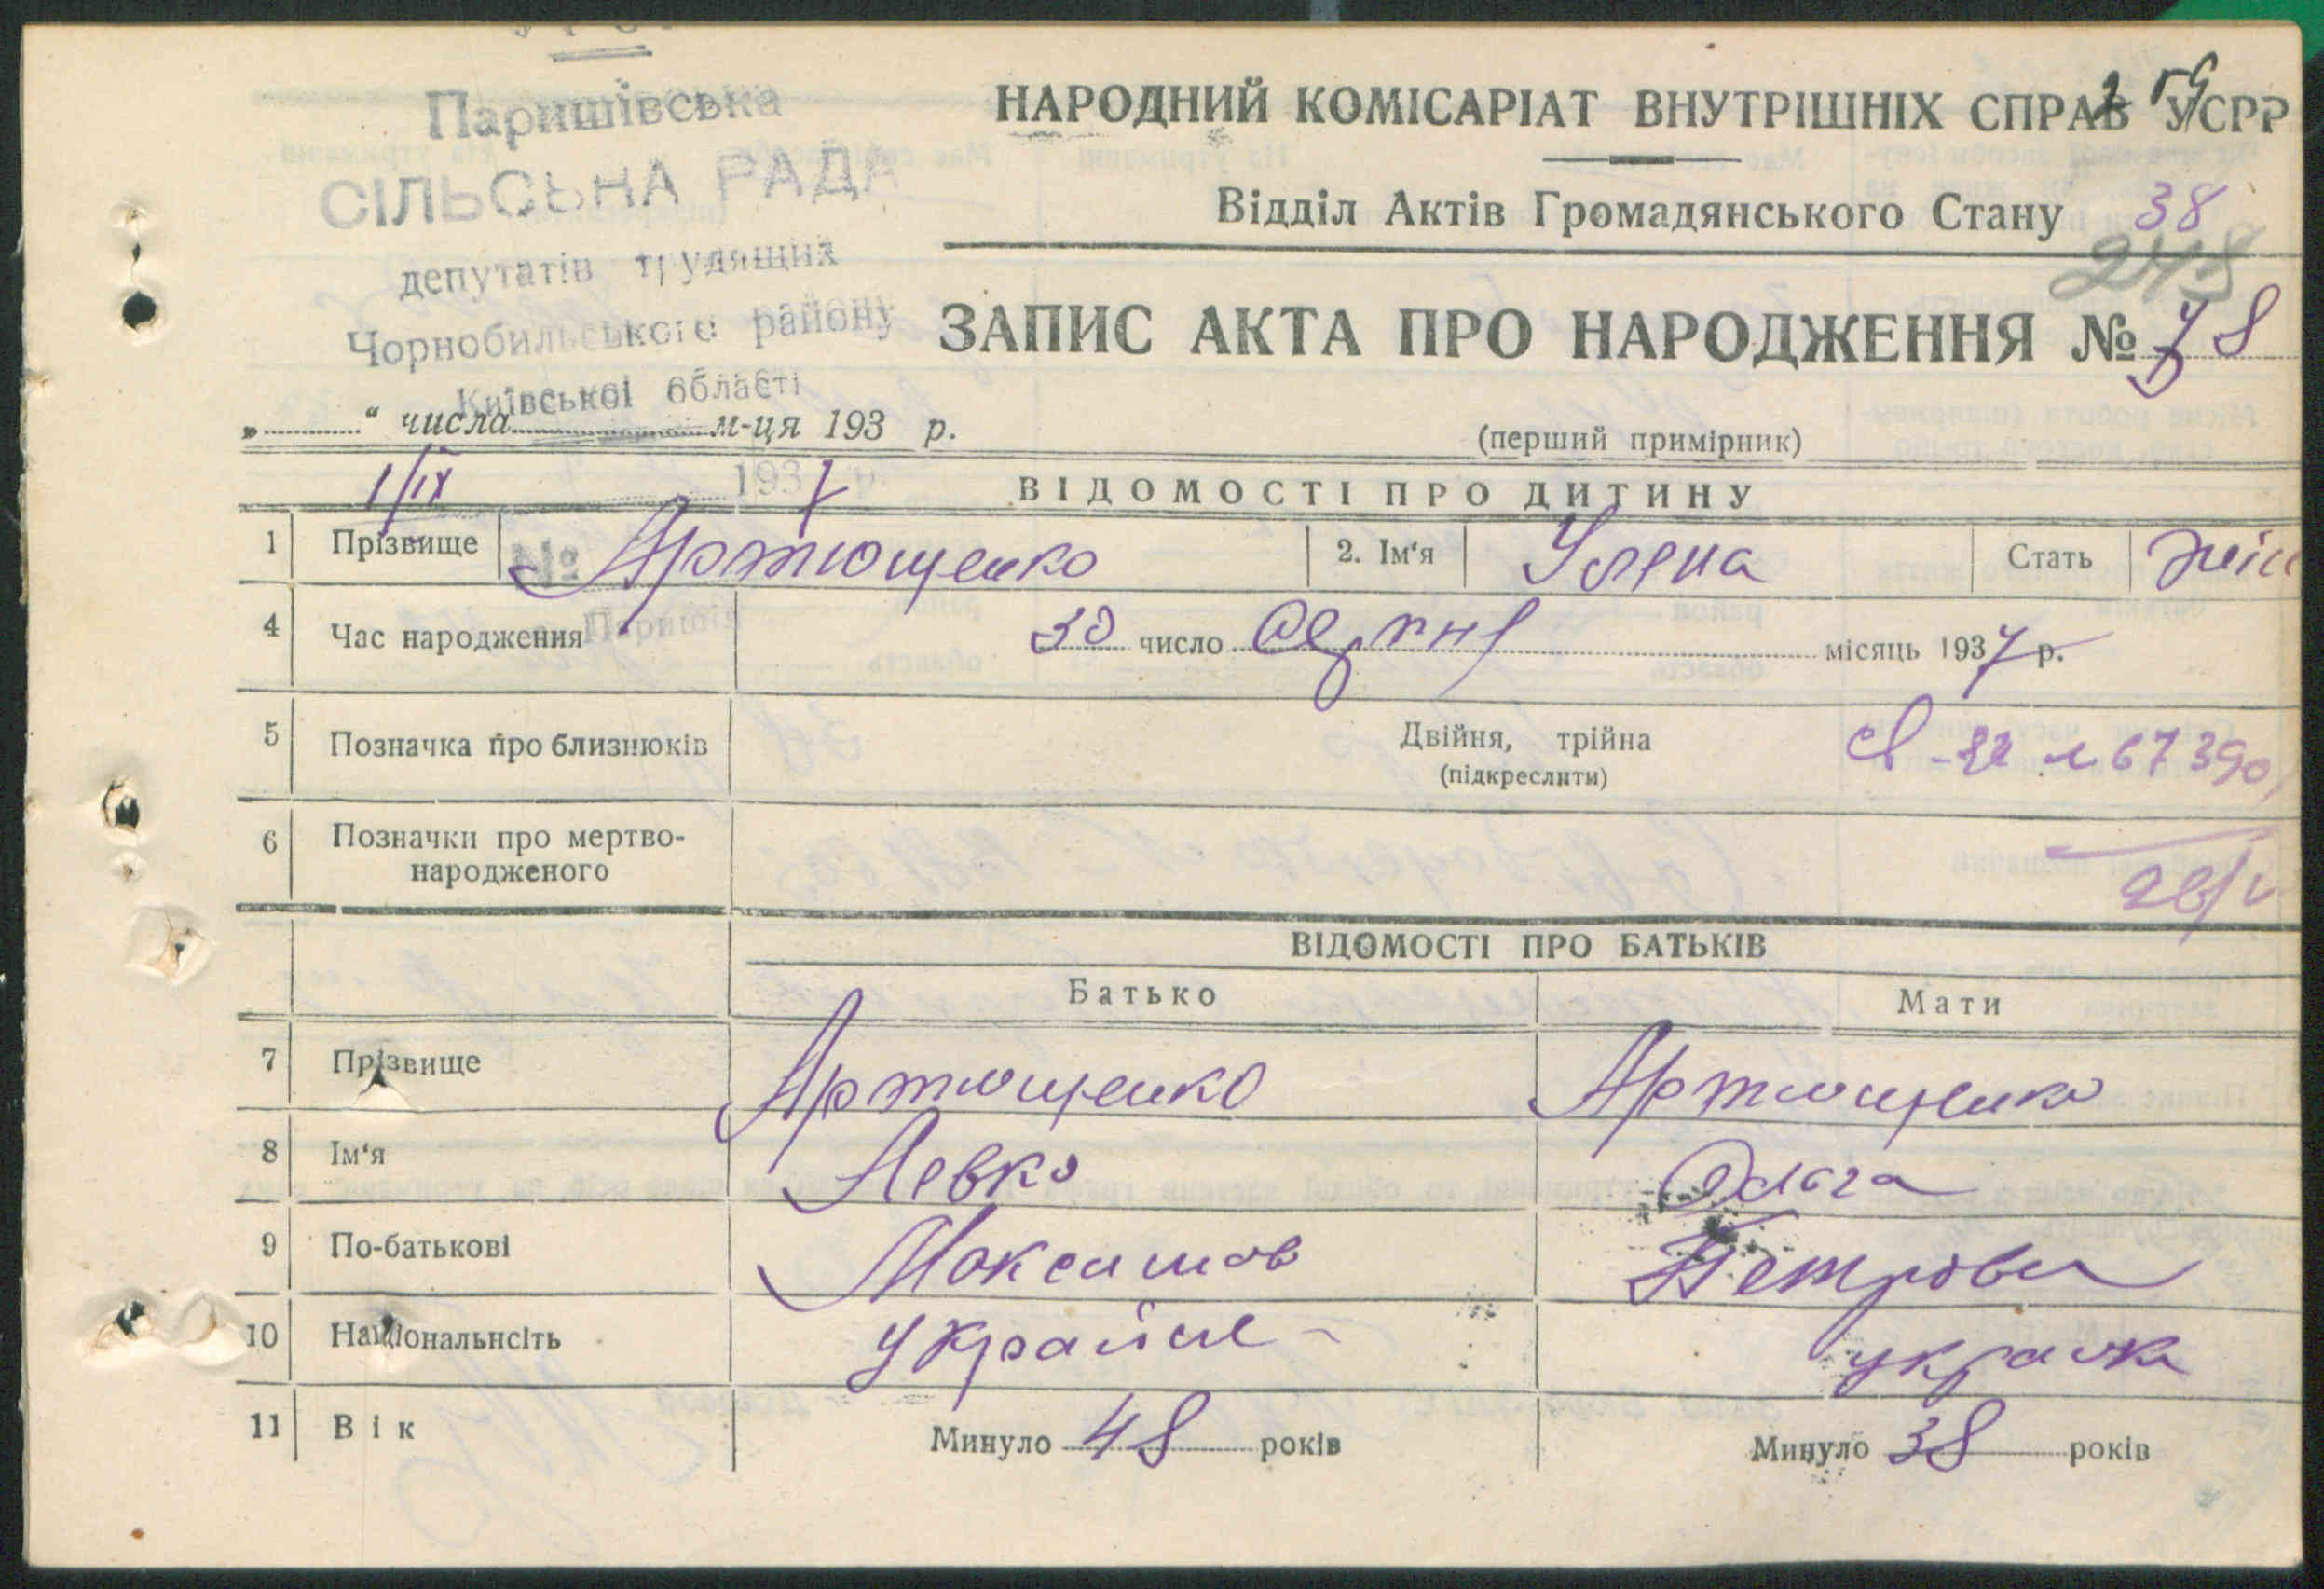 УРСР
Паришівська
СІЛЬСЬКА РАДА
депутатів трудящих
Чорнобильського району
Київської області
НАРОДНИЙ КОМІСАРІАТ ВНУТРІШНІХ СПРАВ УСРР
Відділ Актів Громадянського Стану 38
248
ЗАПИС АКТА ПРО НАРОДЖЕННЯ № 78
„ “ числа м-ця 193 р.
(перший примірник)
1/IX 1937 р.
ВІДОМОСТІ ПРО ДИТИНУ
1 Прізвище Артющенко 2. Ім‘я Уляна Стать жін
№
Паришів
4 Час народження 30 число Серпня місяць 1937 р.
5 Позначка про близнюків Двійня, трійна
(підкреслити)
67390
6 Позначки про мертво-
народженого
ВІДОМОСТІ ПРО БАТЬКІВ
Батько Мати
7 Прізвище Артющенко Артющенко
8 Ім‘я Левко Ольга
9 По-батькові Максимов Петровн
10 Національнсіть україне укр-ка
11 Вік Минуло 48 років Минуло 38 років